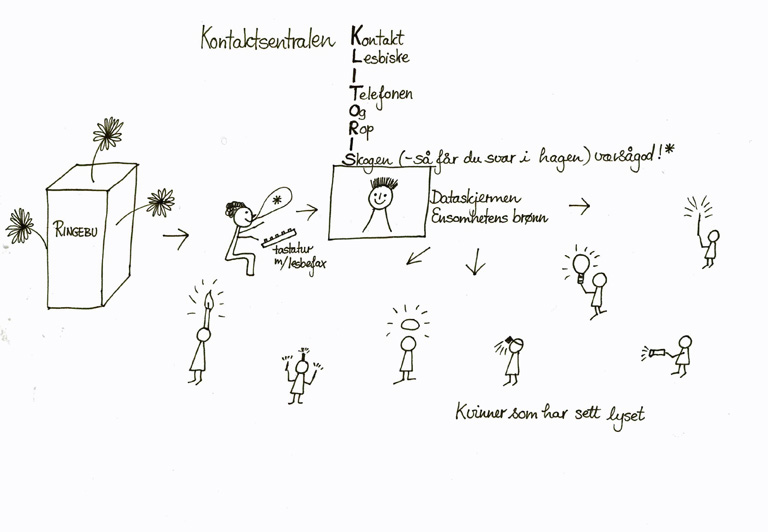 Kontaktsentralen
Kontakt
Lesbiske
I
Telefonen
Og
Rop
I
Skogen (-så får du svar i hagen) værsågod!*
RINGEBU
*
tastatur
m/lesbefax
Dataskjermen
Ensomhetens brønn
Kvinner som har sett lyset